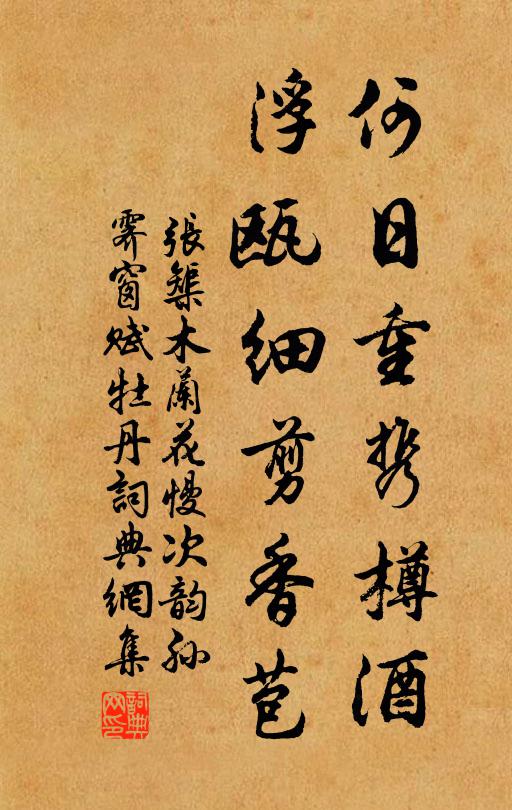 何日重携樽酒
浮瓯细剪香苞
張榘木蘭花慢次韵孙
霽窗赋牡丹詞典網集
詞典网印